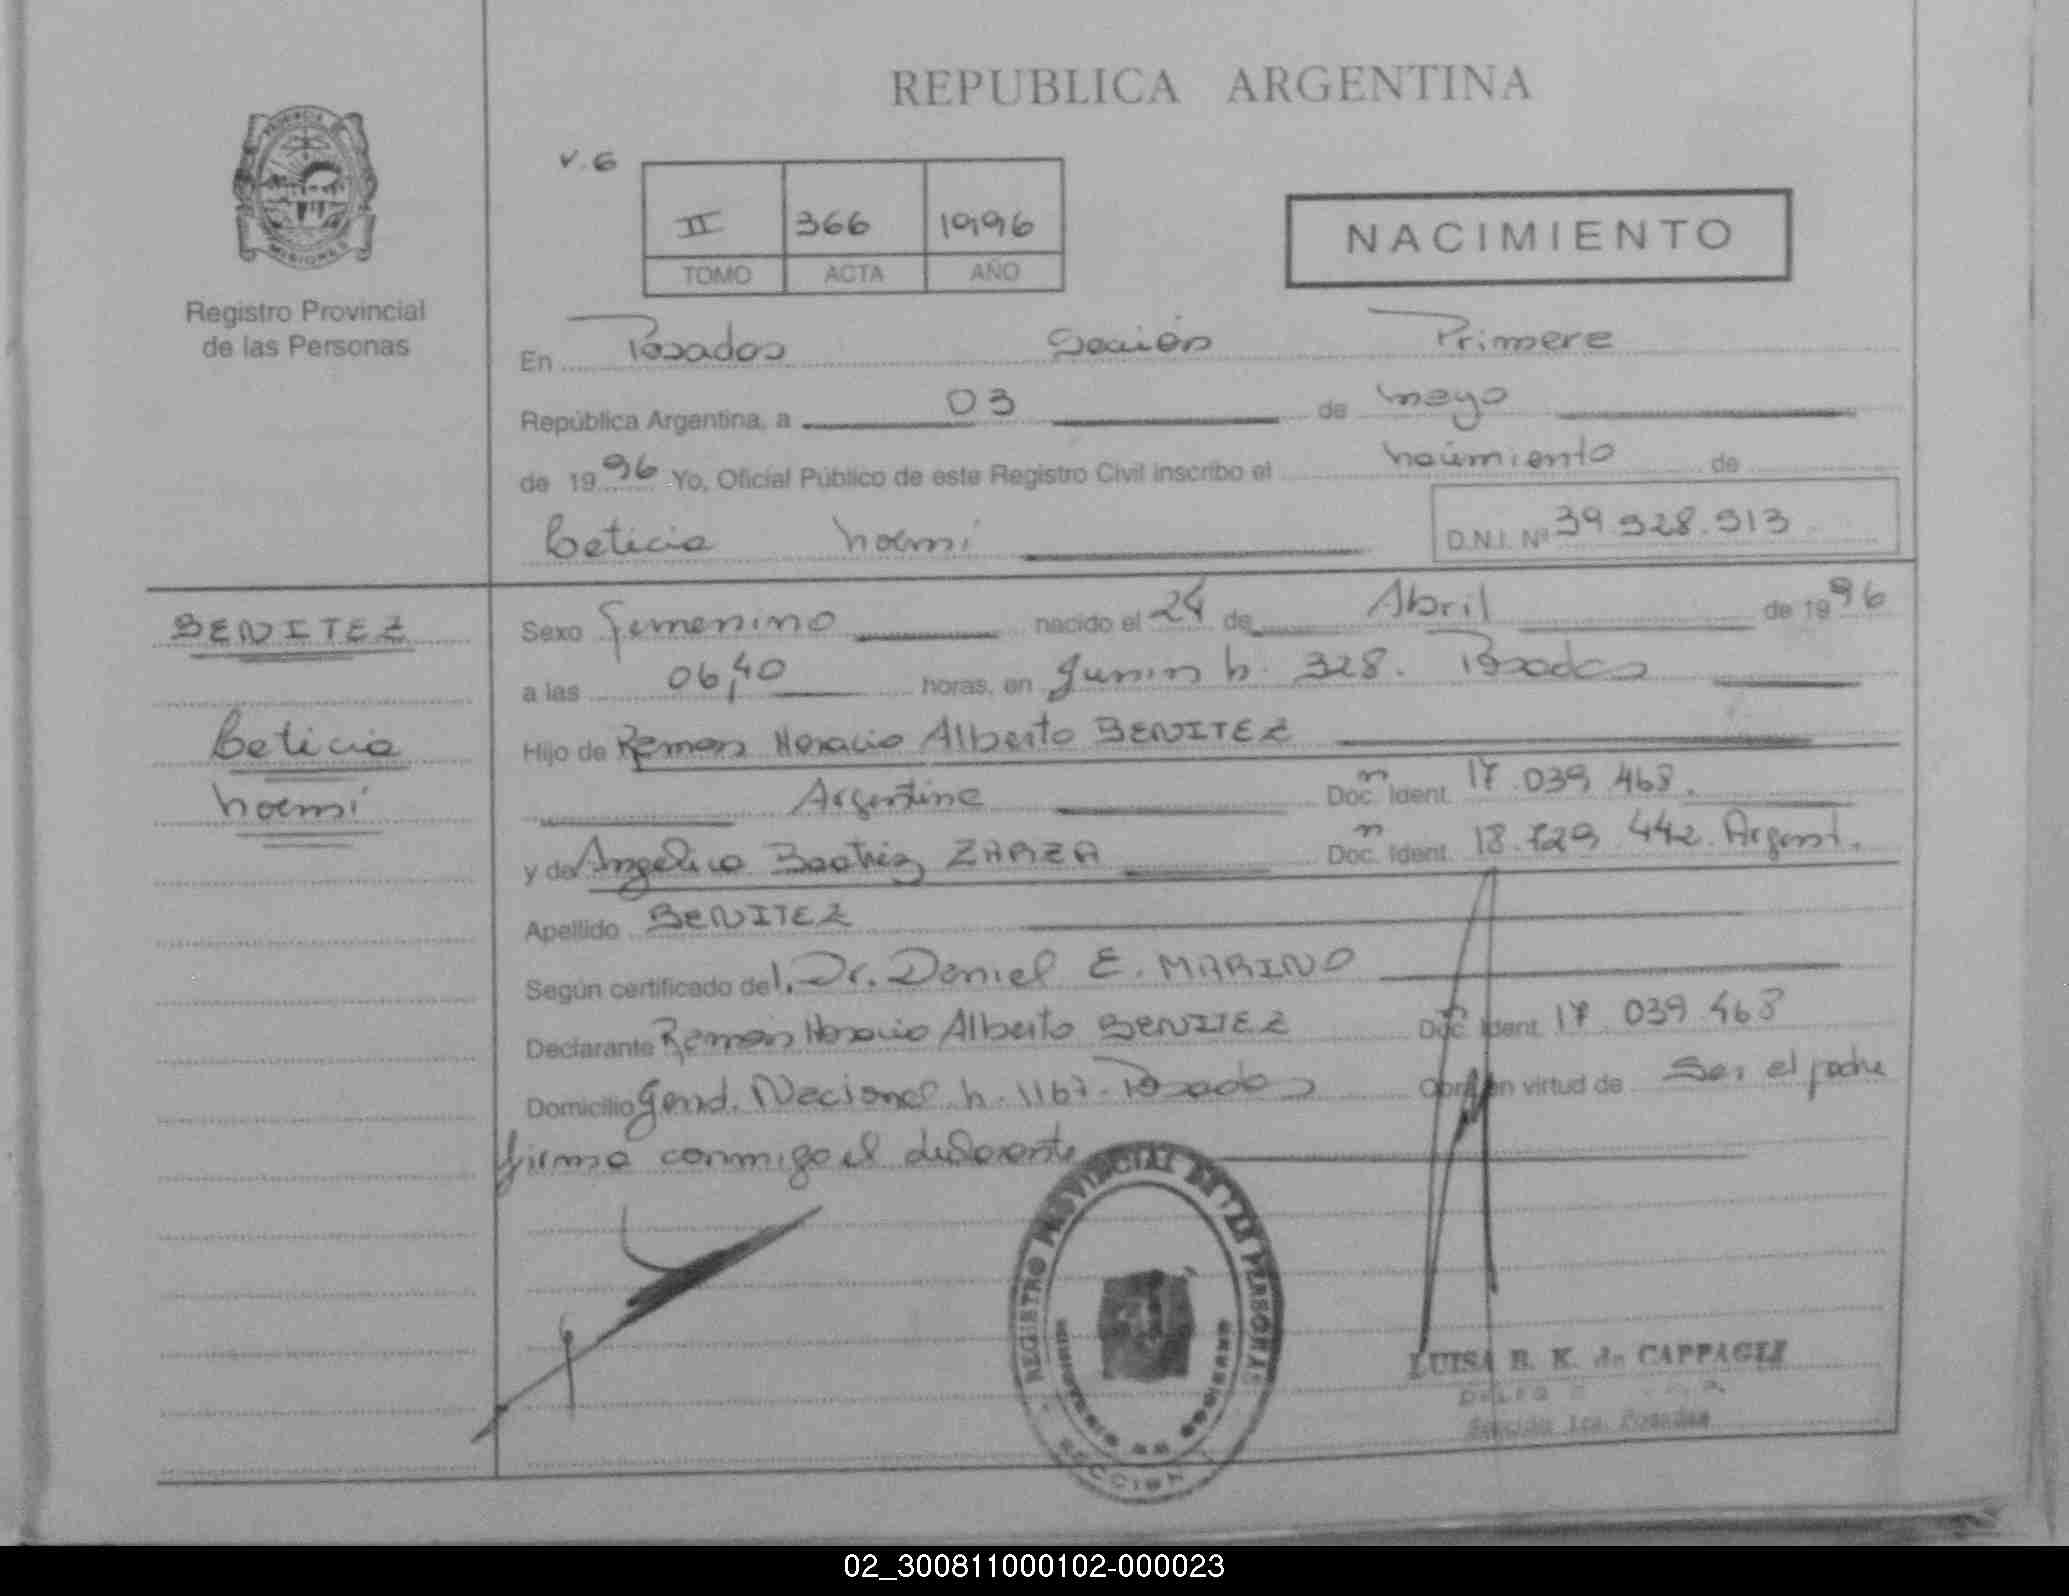 REPUBLICA ARGENTINA
V. 6
II 366 1996
TOMO ACTA AÑO
NACIMIENTO
PROVINCIA DE MISIONES
Registro Provincial
de las Personas
En Posadas Sección Primera
República Argentina, a 03 de mayo
de 1996 Yo, Oficial Público de este Registro Civil inscribo el nacimiento de
Leticia Noemí D.N.I. Nº 39.528.513
BENITEZ
Leticia
Noemí
Sexo femenino nacido el 24 de Abril de 1996
a las 06,40 horas, en Junin n. 328. Posadas
Hijo de Ramon Horacio Alberto BENITEZ
Argentino Doc. Ident. m 17.039.468.
y de Angelica Beatriz ZARZA Doc. Ident. m 18.729.442. Argent.
Apellido BENITEZ
Según certificado del. Dr. Daniel E. MARINO
Declarante Ramon Horacio Alberto BENITEZ Doc. Ident. 17.039.468
Domicilio Gend. Nacional n. 1167 - Posadas Obra en virtud de Ser el padre
firma conmigo el declarante
REGISTRO PROVINCIAL DE LAS PERSONAS
MINISTERIO DE GOBIERNO
SECCION 1
LUISA B. K. de CAPPAGLI
Sección 1ra. Posadas
02_300811000102-000023